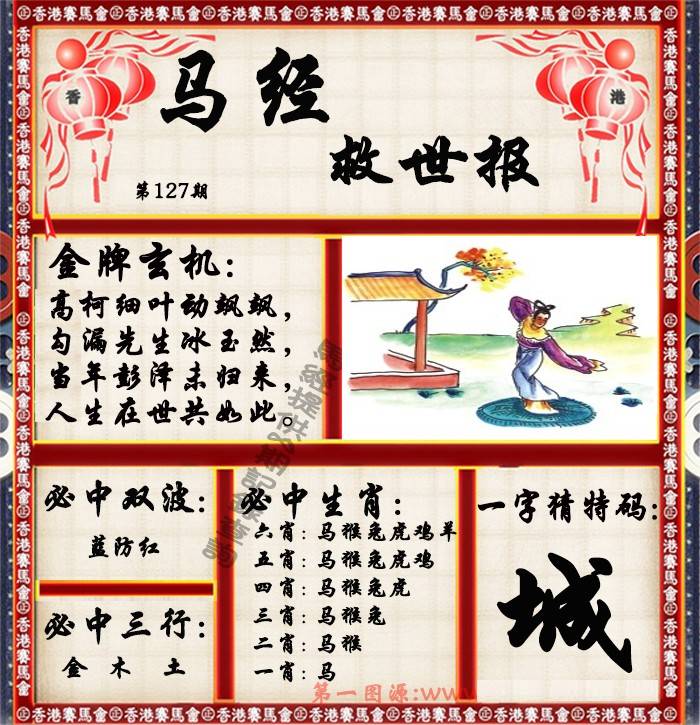 香港賽馬會
香
港
马经
救世报
第127期
金牌玄机:
高柯细叶动飒飒,
勾漏先生冰玉然,
当年彭泽未归来,
人生在世共如此。
必中双波:
蓝防红
必中三行:
金 木 土
必中生肖:
六肖:马猴兔虎鸡羊
五肖:马猴兔虎鸡
四肖:马猴兔虎
三肖:马猴兔
二肖:马猴
一肖:马
一字猜特码:
城
第一图源:www